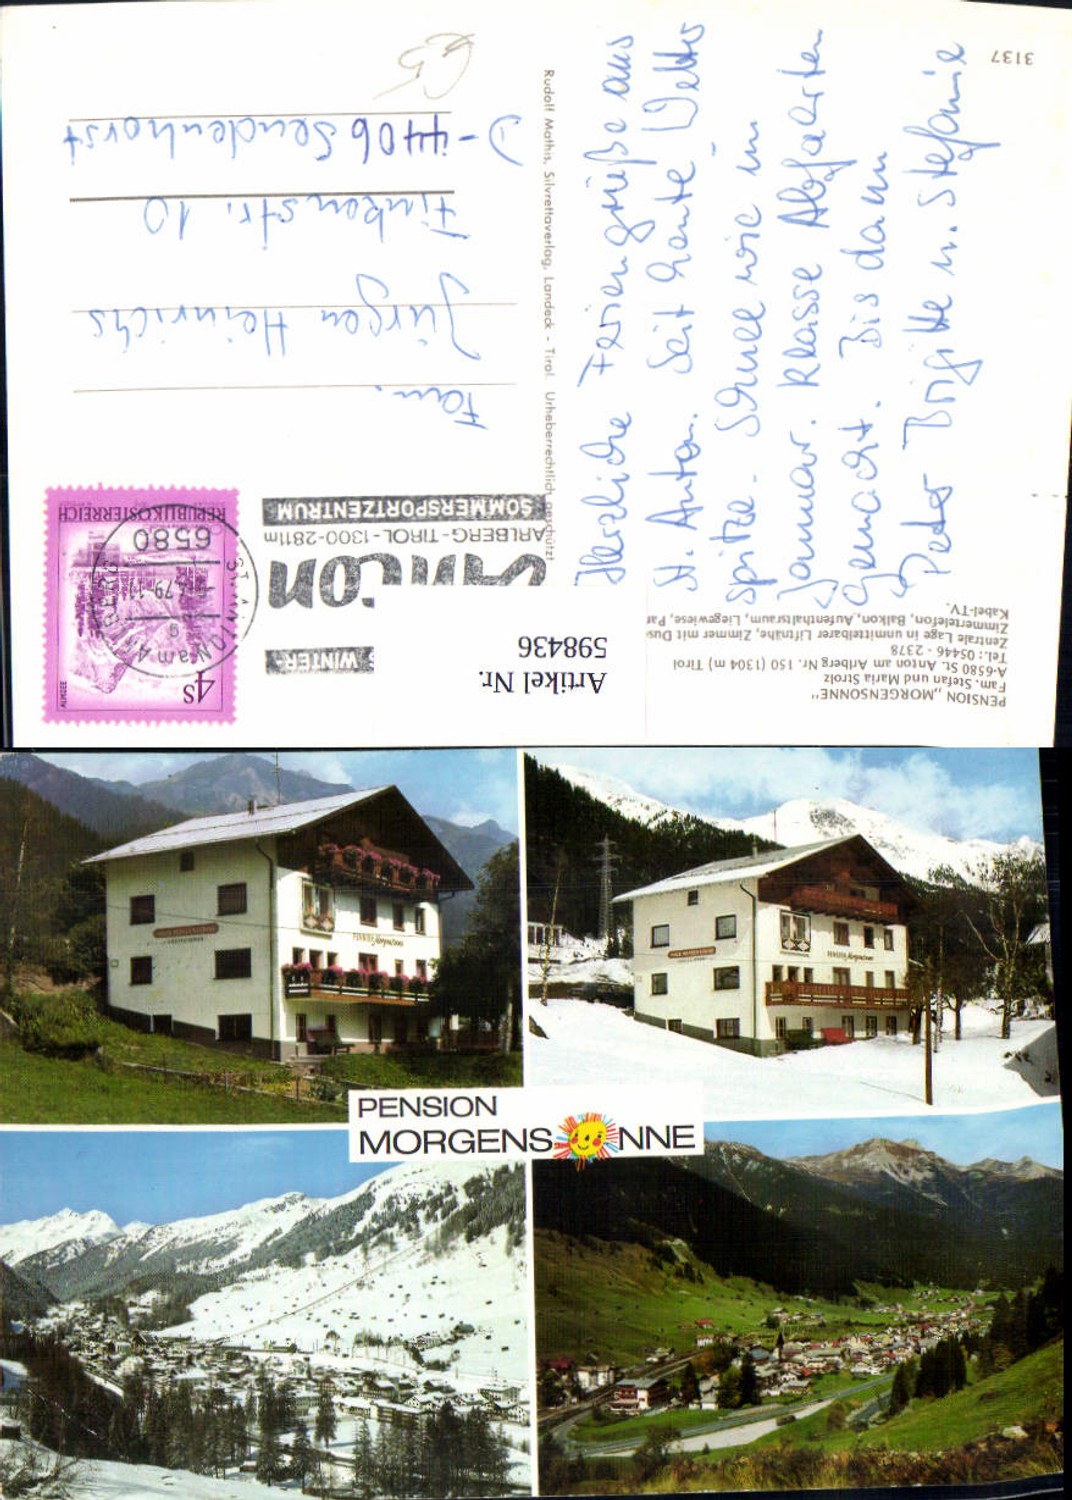 3137
Herzliche Feriengrüße aus
St. Anton. Seit heute Wetter
spitze. Schnee wie im
Januar. Klasse Abfahrten
gemacht. Bis dann
Peter Brigitte u. Stefanie
Rudolf Mathis, Silvrettaverlag, Landeck - Tirol. Urheberrechtlich geschützt
Fam.
Jürgen Heinrichs
Finkenstr. 10
D-4406 Sendenhorst
REPUBLIK ÖSTERREICH
ALMSEE
4S
6580
79-11
WINTER-
ARLBERG-TIROL-1300-2811m
SOMMERSPORTZENTRUM
Artikel Nr.
598436
PENSION „MORGENSONNE"
Fam. Stefan und Maria Strolz
A-6580 St. Anton am Arlberg Nr. 150 (1304 m) Tirol
Tel.: 05446 - 2378
Zentrale Lage in unmittelbarer Liftnähe, Zimmer mit Dus
Zimmertelefon, Balkon, Aufenthaltsraum, Liegewiese, Par
Kabel-TV.
PENSION Morgensonne
PENSION Morgensonne
PENSION
MORGENSONNE